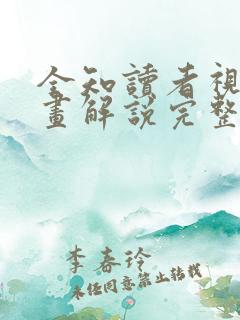 全知讀者視
畫解說完整
李春玲
未经同意禁止转载